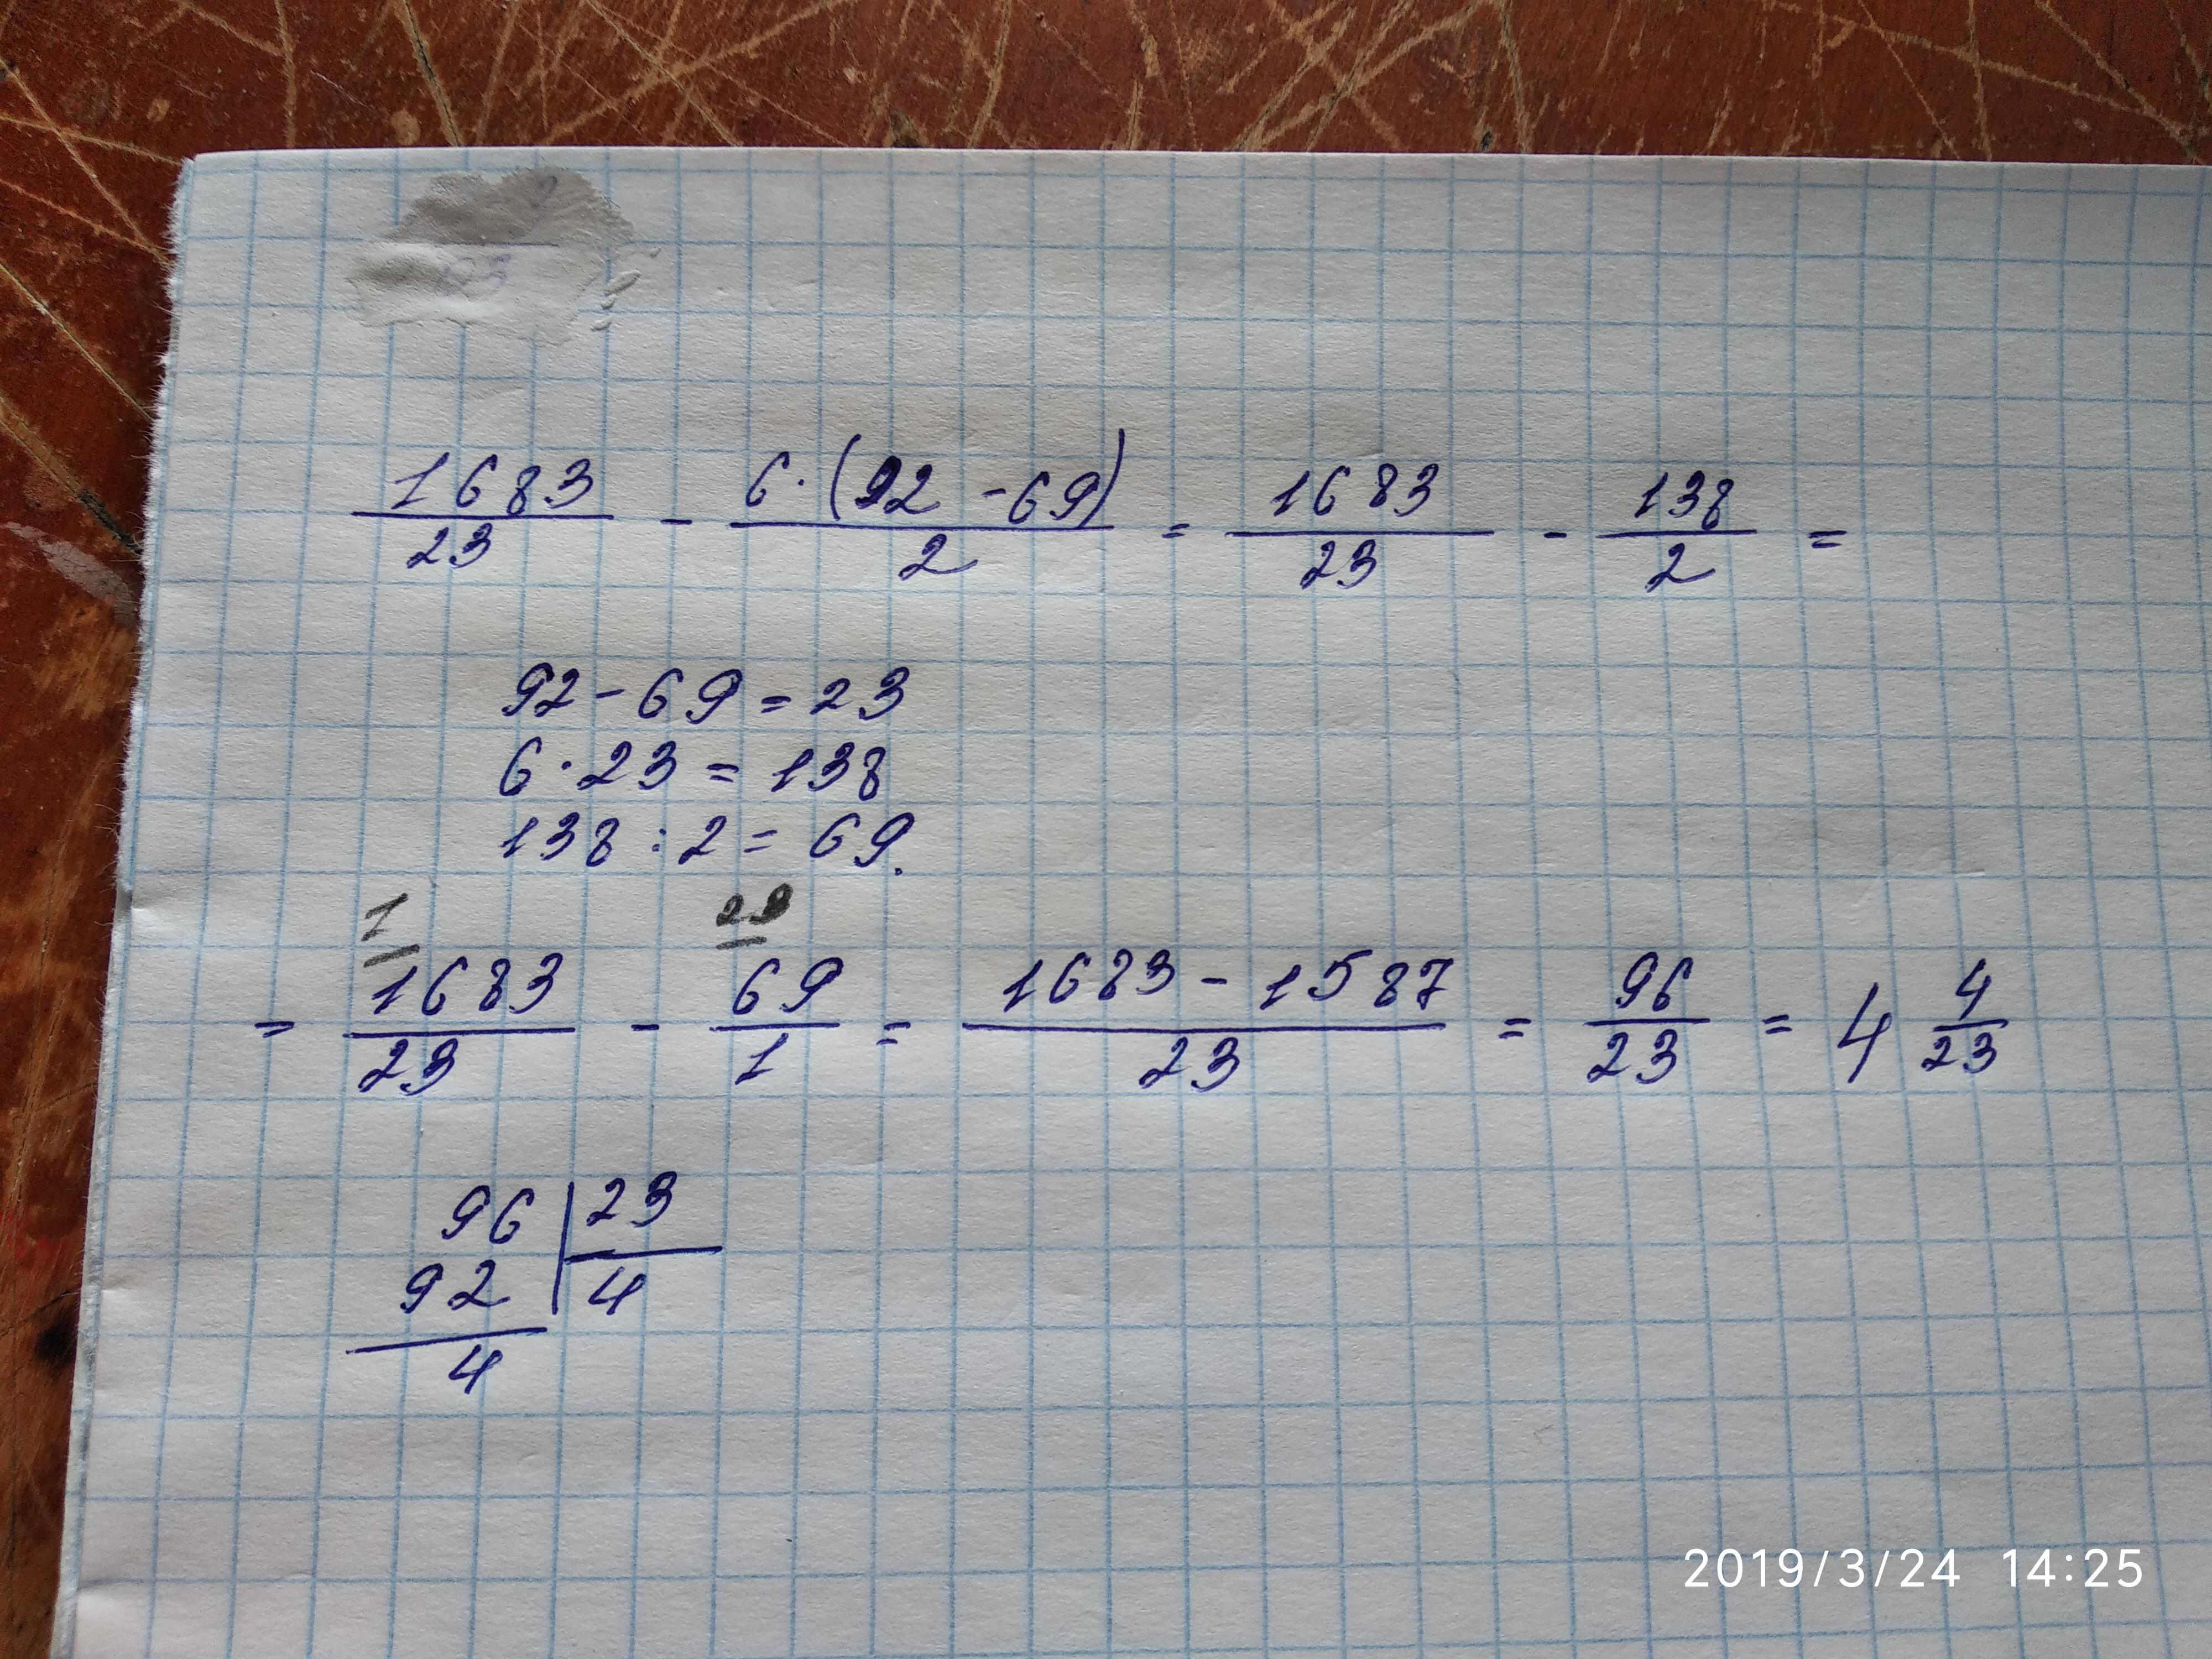 1683/23 - 6·(92-69)/2 = 1683/23 - 138/2 =
92-69=23
6·23=138
138:2=69.
1 23
= 1683/23 - 69/1 = 1683-1587/23 = 96/23 = 4 4/23
96 | 23
92 | 4
4
2019/3/24 14:25